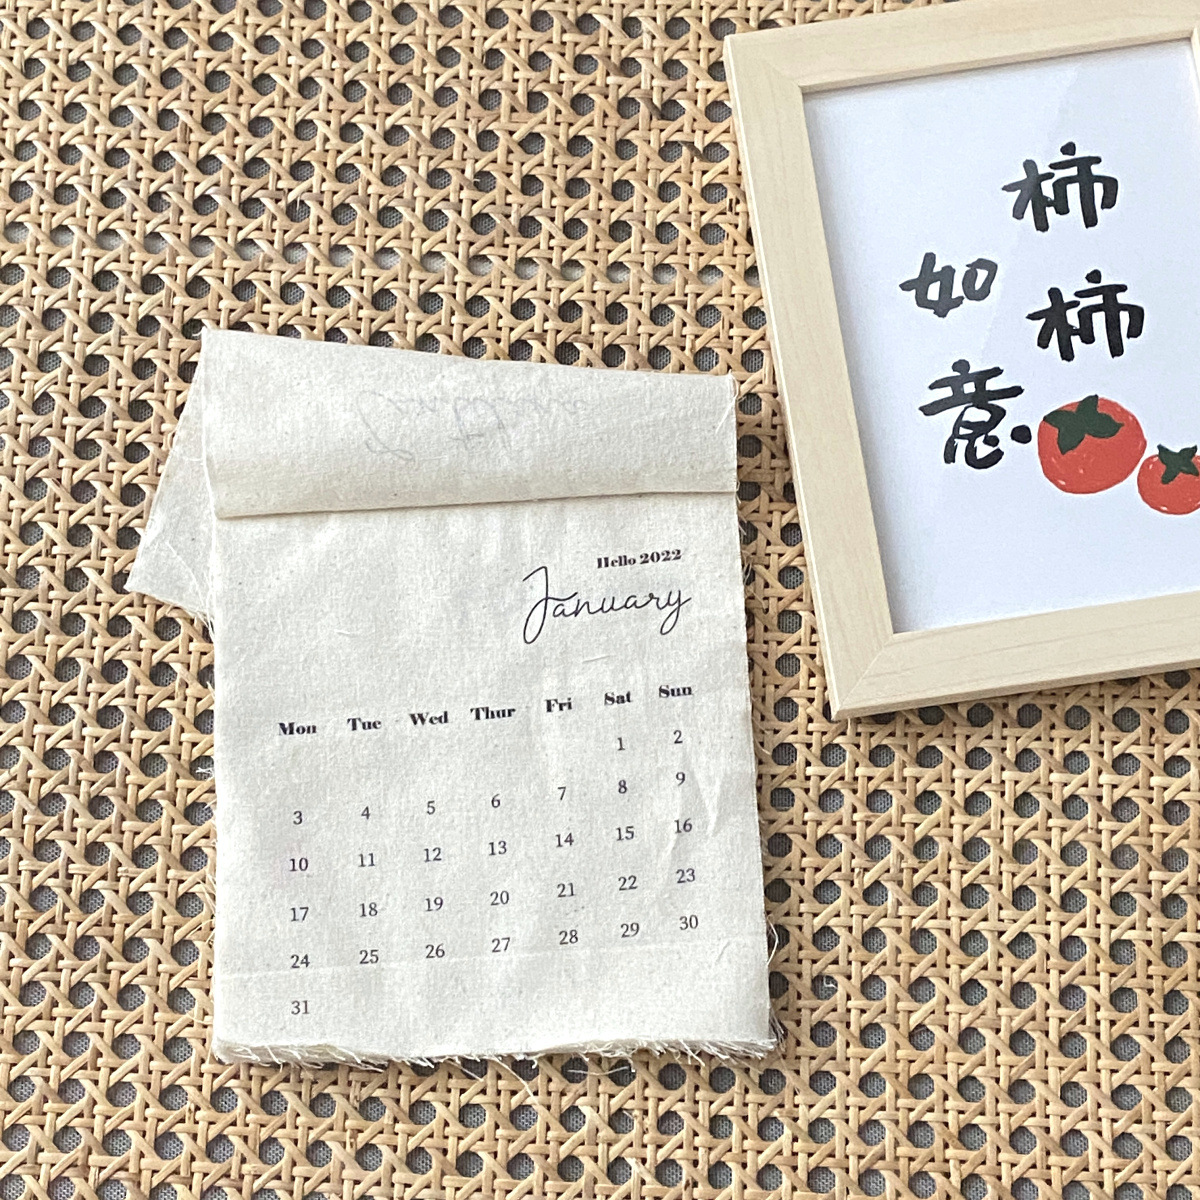 Hello 2022
January
Mon Tue Wed Thur Fri Sat Sun
1 2
3 4 5 6 7 8 9
10 11 12 13 14 15 16
17 18 19 20 21 22 23
24 25 26 27 28 29 30
31
柿柿
如意